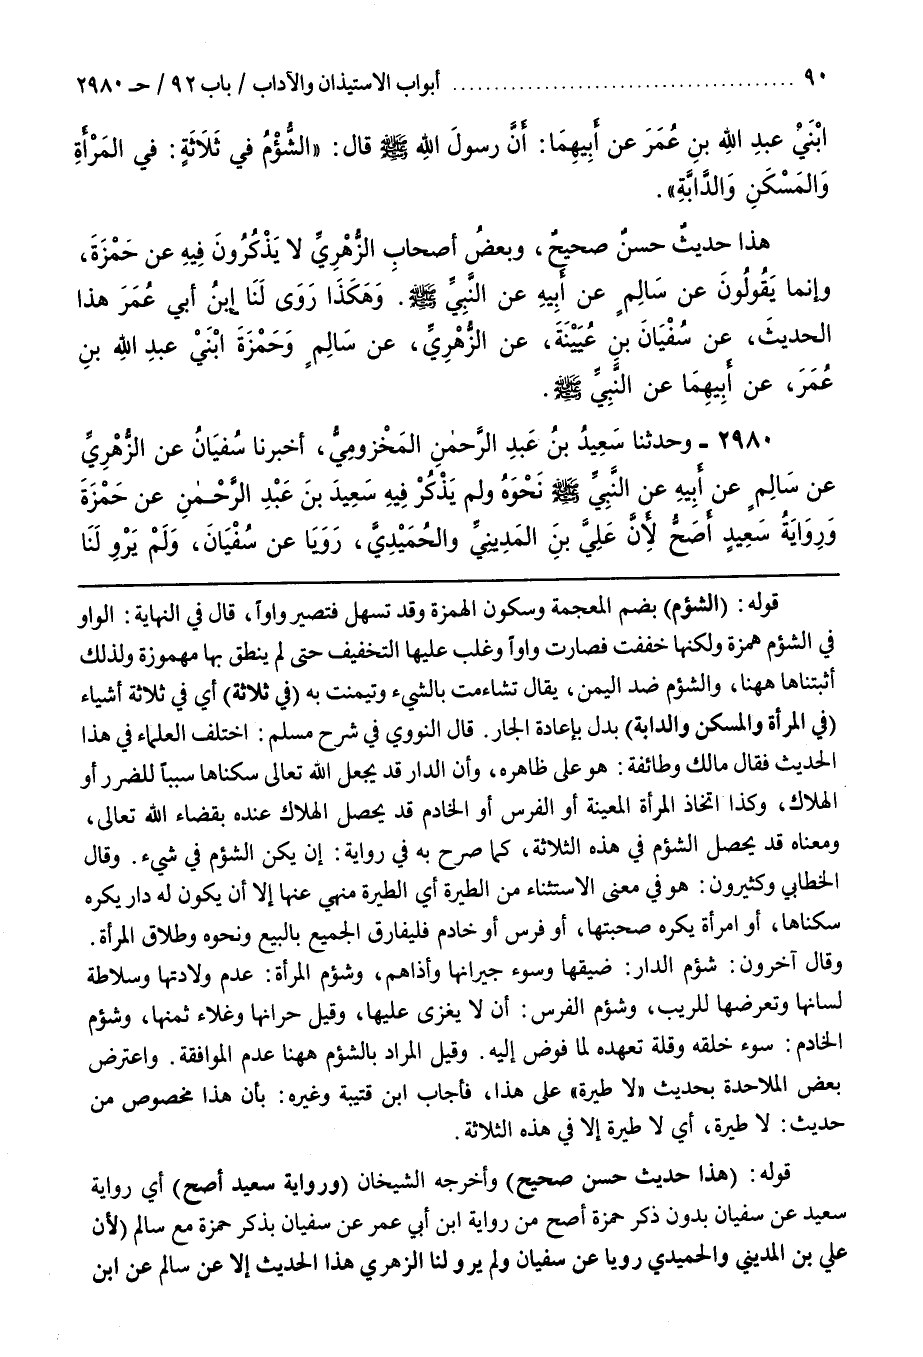 ٩٠ ........................................ أبواب الاستيذان والآداب / باب ٩٢ / حـ ٢٩٨٠
ابْنَيْ عبدِ اللهِ بنِ عُمَرَ عن أَبِيهِمَا: أَنَّ رسولَ اللهِ ﷺ قال: «الشُّؤْمُ في ثَلَاثَةٍ: في المَرْأَةِ
وَالمَسْكَنِ وَالدَّابَّةِ».
هذا حديثٌ حسنٌ صحيحٌ، وبعضُ أصحابِ الزُّهْرِيِّ لا يَذْكُرُونَ فِيهِ عن حَمْزَةَ،
وإنما يَقُولُونَ عن سَالِمٍ عن أَبِيهِ عن النَّبِيِّ ﷺ. وَهَكَذَا رَوَى لَنَا إبنُ أبي عُمَرَ هذا
الحديثَ، عن سُفْيَانَ بنِ عُيَيْنَةَ، عن الزُّهْرِيِّ، عن سَالِمٍ وَحَمْزَةَ ابْنَيْ عبدِ اللهِ بنِ
عُمَرَ، عن أَبِيهِمَا عن النَّبِيِّ ﷺ.
٢٩٨٠ ـ وحدثنا سَعِيدُ بنُ عَبدِ الرَّحمٰنِ المَخْزومِيُّ، أخبرنا سُفْيَانُ عن الزُّهْرِيِّ
عن سَالِمٍ عن أَبِيهِ عن النَّبِيِّ ﷺ نَحْوَهُ ولم يَذْكُرْ فِيهِ سَعِيدَ بنَ عَبْدِ الرَّحْـمٰنِ عن حَمْزَةَ
وَرِوَايَةُ سَعِيدٍ أَصَحُّ لأَنَّ عَلِيَّ بنَ المَدِينِيِّ والحُمَيْدِيَّ، رَوَيَا عن سُفْيَانَ، وَلَمْ يَرْوِ لَنَا
قوله: (الشؤم) بضم المعجمة وسكون الهمزة وقد تسهل فتصير واواً، قال في النهاية: الواو
في الشؤم همزة ولكنها خففت فصارت واواً وغلب عليها التخفيف حتى لم ينطق بها مهموزة ولذلك
أثبتناها ههنا، والشؤم ضد اليمن، يقال تشاءمت بالشيء وتيمنت به (في ثلاثة) أي في ثلاثة أشياء
(في المرأة والمسكن والدابة) بدل بإعادة الجار. قال النووي في شرح مسلم: اختلف العلماء في هذا
الحديث فقال مالك وطائفة: هو على ظاهره، وأن الدار قد يجعل الله تعالى سكناها سبباً للضرر أو
الهلاك، وكذا اتخاذ المرأة المعينة أو الفرس أو الخادم قد يحصل الهلاك عنده بقضاء الله تعالى،
ومعناه قد يحصل الشؤم في هذه الثلاثة، كما صرح به في رواية: إن يكن الشؤم في شيء. وقال
الخطابي وكثيرون: هو في معنى الاستثناء من الطيرة أي الطيرة منهي عنها إلا أن يكون له دار يكره
سكناها، أو امرأة يكره صحبتها، أو فرس أو خادم فليفارق الجميع بالبيع ونحوه وطلاق المرأة.
وقال آخرون: شؤم الدار: ضيقها وسوء جيرانها وأذاهم، وشؤم المرأة: عدم ولادتها وسلاطة
لسانها وتعرضها للريب، وشؤم الفرس: أن لا يغزى عليها، وقيل حرانها وغلاء ثمنها، وشؤم
الخادم: سوء خلقه وقلة تعهده لما فوض إليه. وقيل المراد بالشؤم ههنا عدم الموافقة. واعترض
بعض الملاحدة بحديث «لا طيرة» على هذا، فأجاب ابن قتيبة وغيره: بأن هذا مخصوص من
حديث: لا طيرة، أي لا طيرة إلا في هذه الثلاثة.
قوله: (هذا حديث حسن صحيح) وأخرجه الشيخان (ورواية سعيد أصح) أي رواية
سعيد عن سفيان بدون ذكر حمزة أصح من رواية ابن أبي عمر عن سفيان بذكر حمزة مع سالم (لأن
علي بن المديني والحميدي رويا عن سفيان ولم يرو لنا الزهري هذا الحديث إلا عن سالم عن ابن